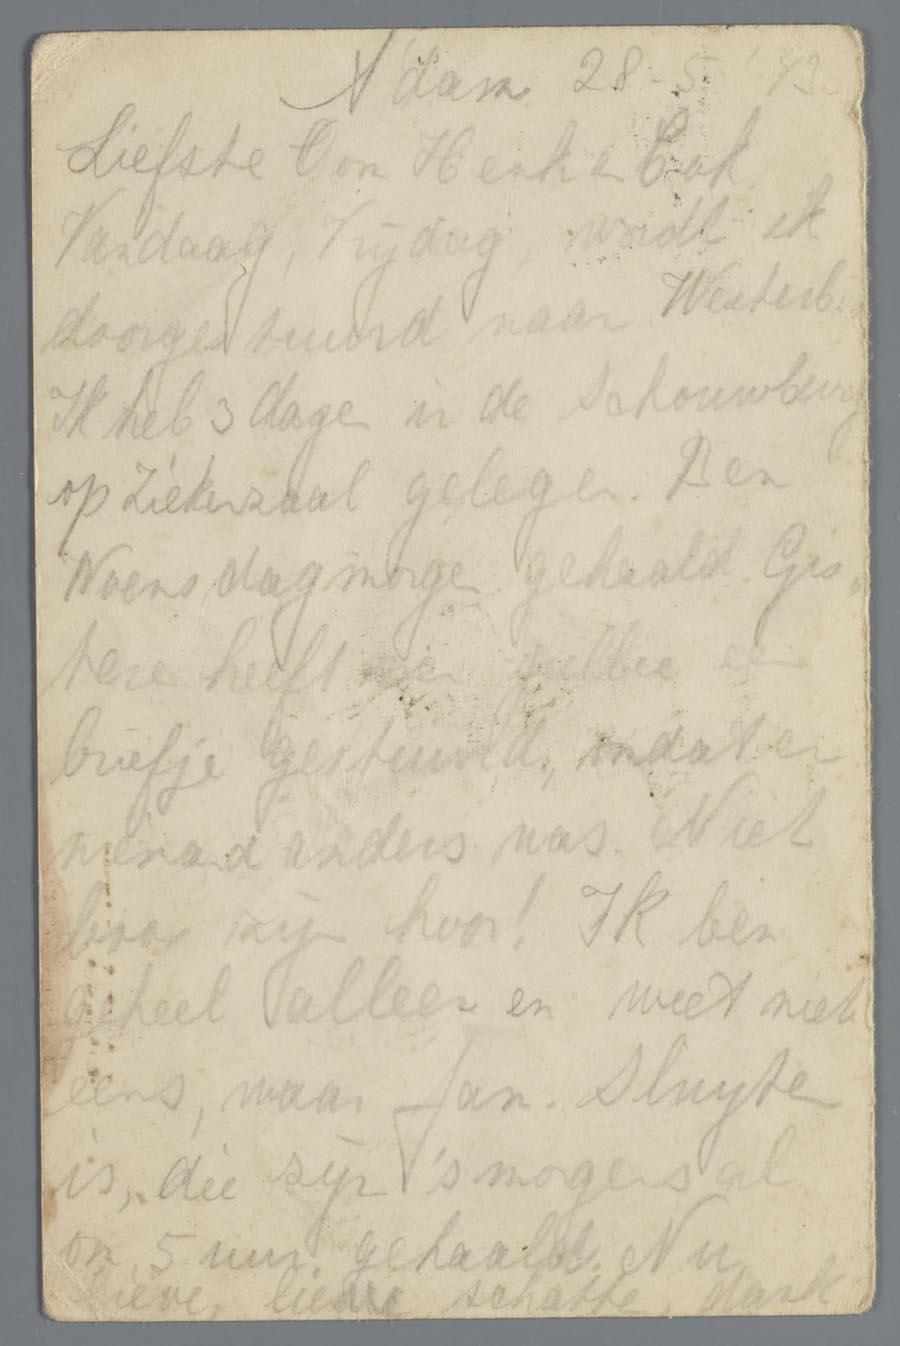 A'dam 28-5-'43.
Liefste Oom Henk en Cok
Vandaag, Vrijdag, wordt ik
doorgestuurd naar Westerb
Ik heb 3 dage in de Schouwburg
op Ziekenzaal gelegen. Ben
Woensdagmorge gehaald. Gis-
tere heeft jullie een
briefje gestuurd, omdat er
niemand anders was. Niet
boos zijn hoor! Ik ben
geheel alleen en weet niet
eens, waar Jan. Sluyte
is, die zijn 's morgens al
om 5 uur gehaald. Nu
lieve, lieve schatte, dank